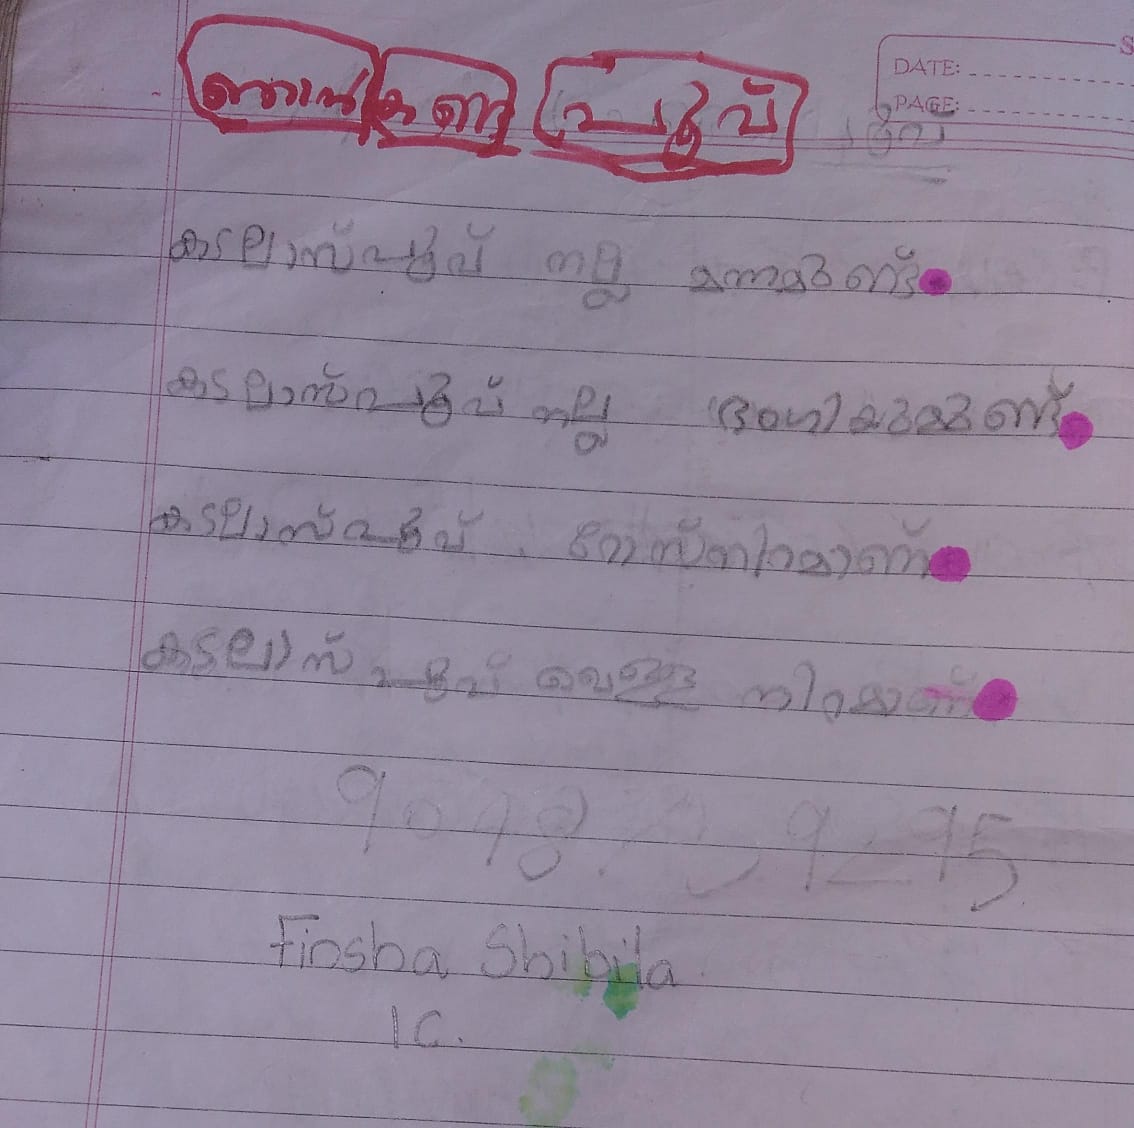 ഞാൻ കണ്ട പൂവ്
DATE:
PAGE:
കടലാസ്പൂവ് നല്ല മണമുണ്ട്
കടലാസ്പൂവ് നല്ല ഭംഗിയുമുണ്ട്
കടലാസ്പൂവ് റോസ്നിറമാണ്
കടലാസ് പൂവ് വെള്ള നിറമാണ്
Finsha Shibila
1C.